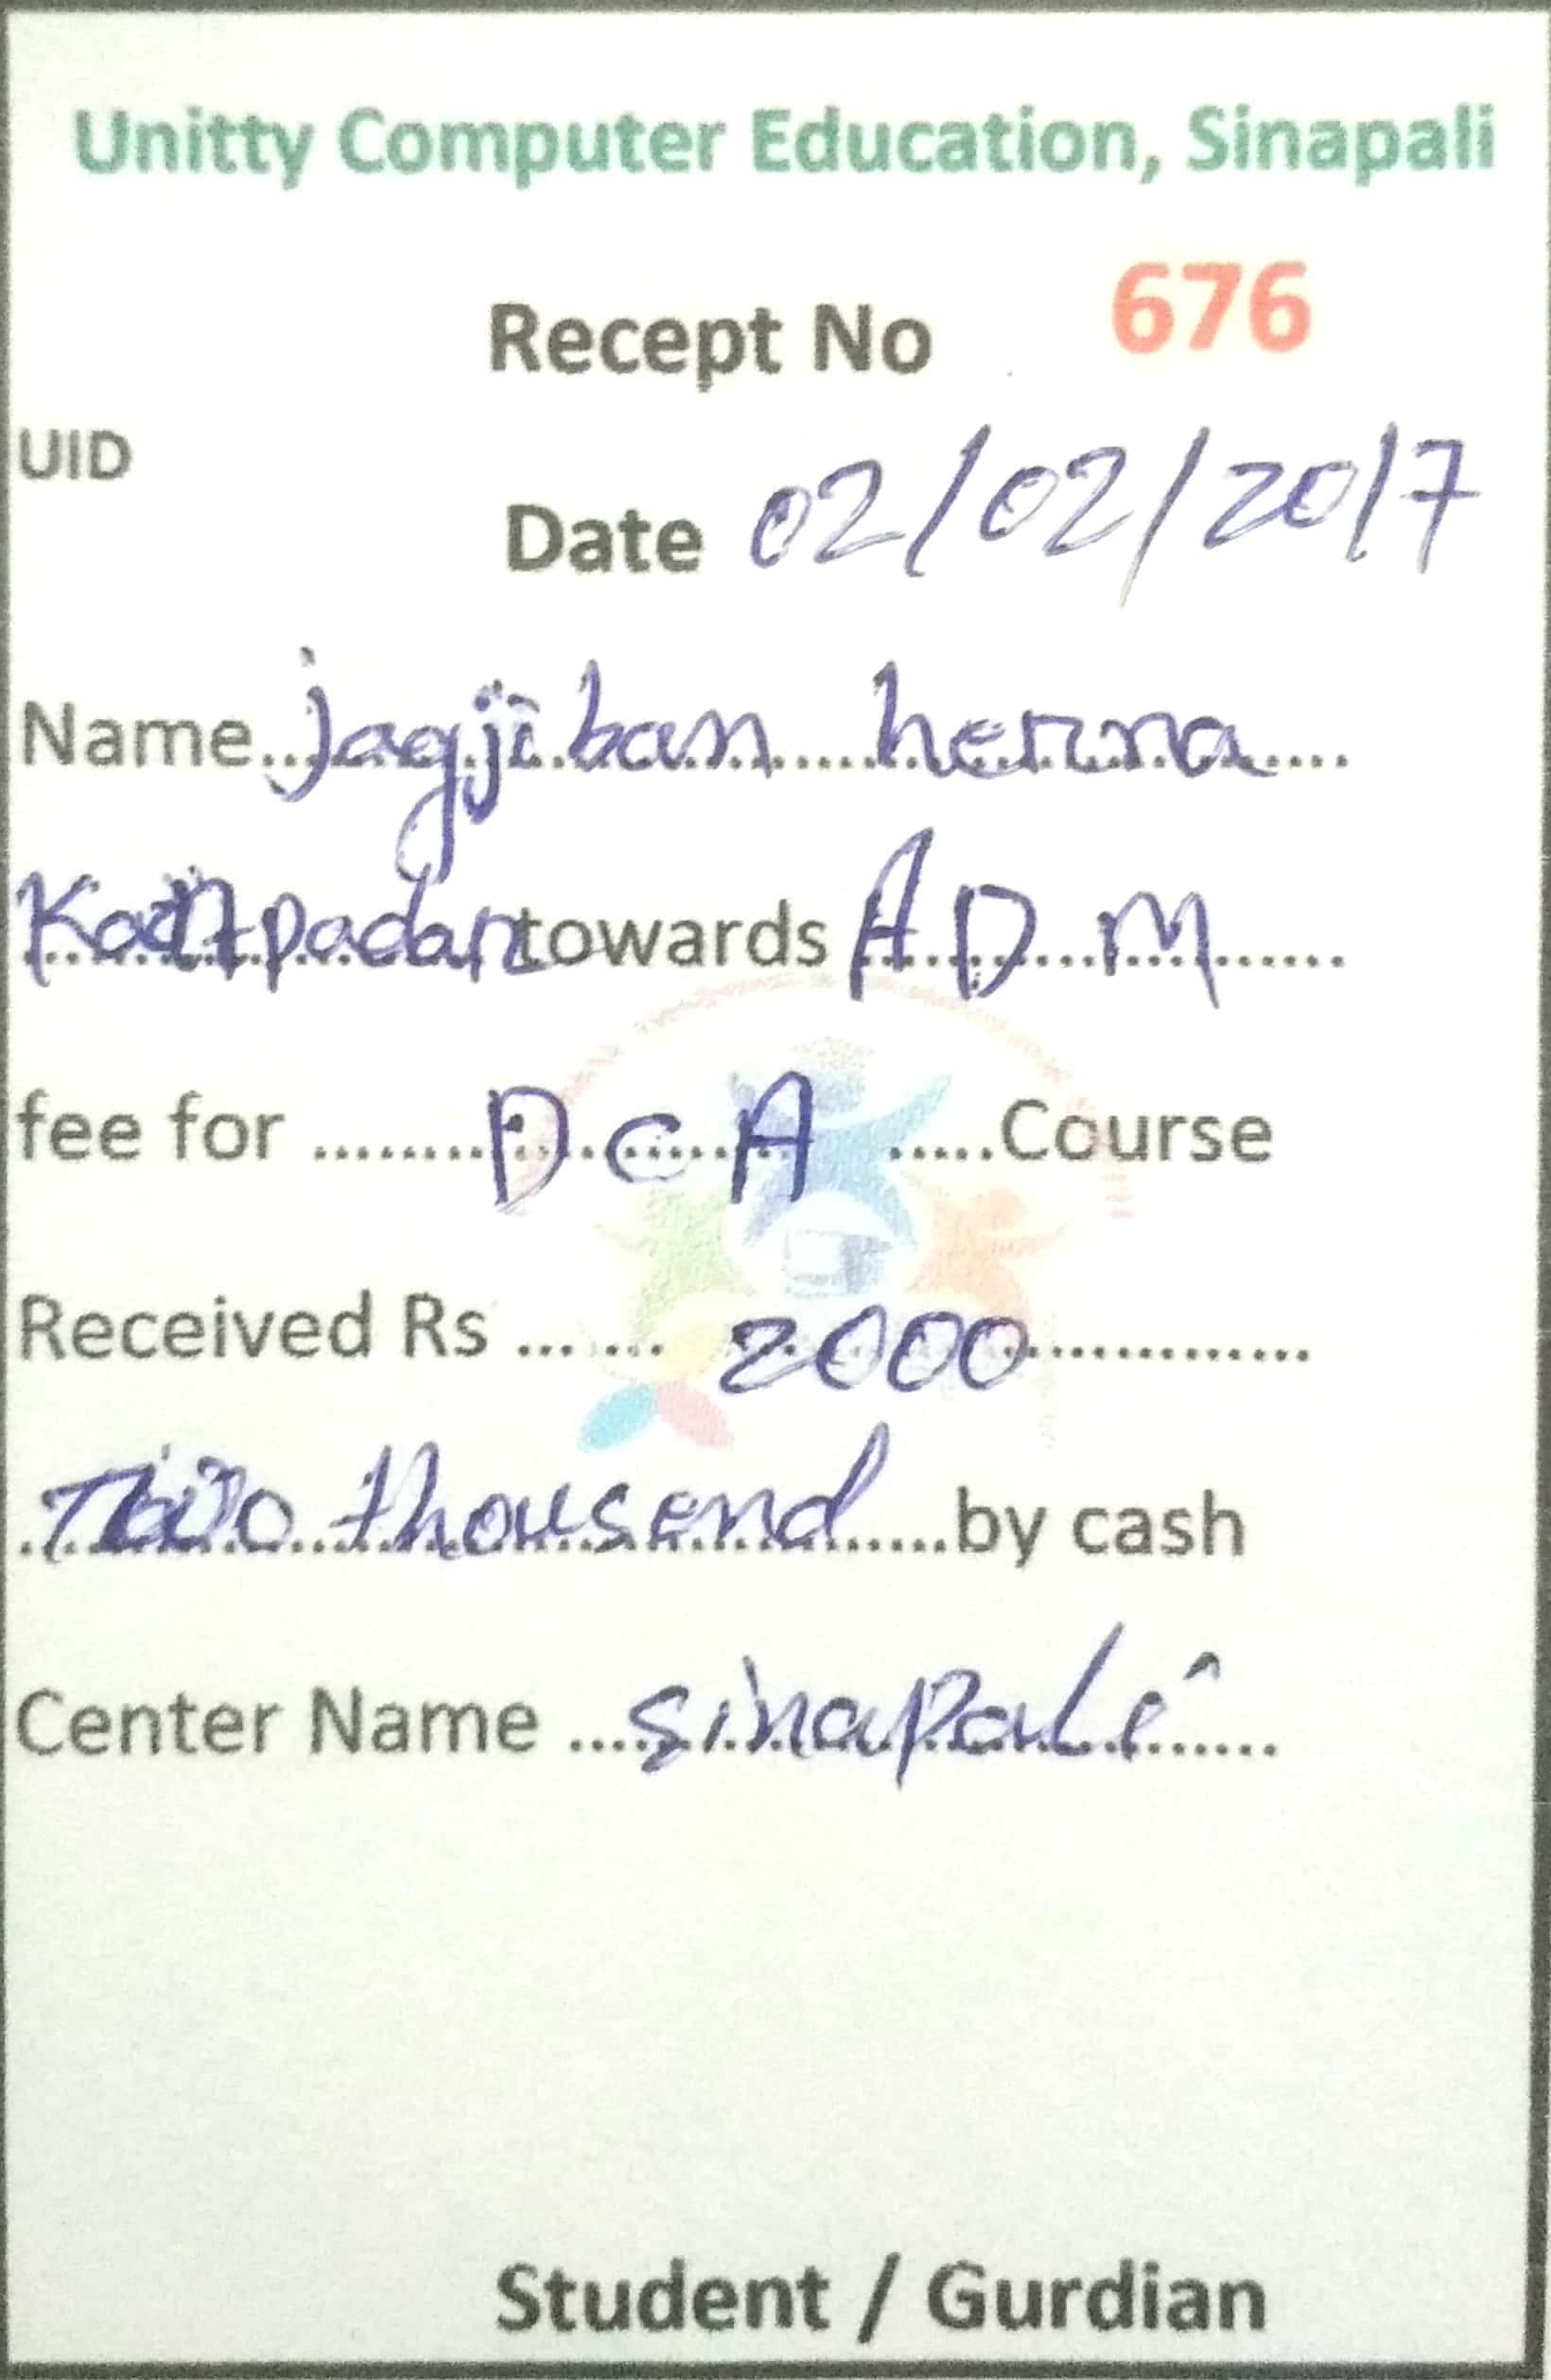 Unitty Computer Education, Sinapali
Recept No 676
UID
Date 02/02/2017
Name jagjiban herna
towards A D M
fee for D C A Course
Received Rs 2000
Two thousend by cash
Center Name sinapali
Student / Gurdian